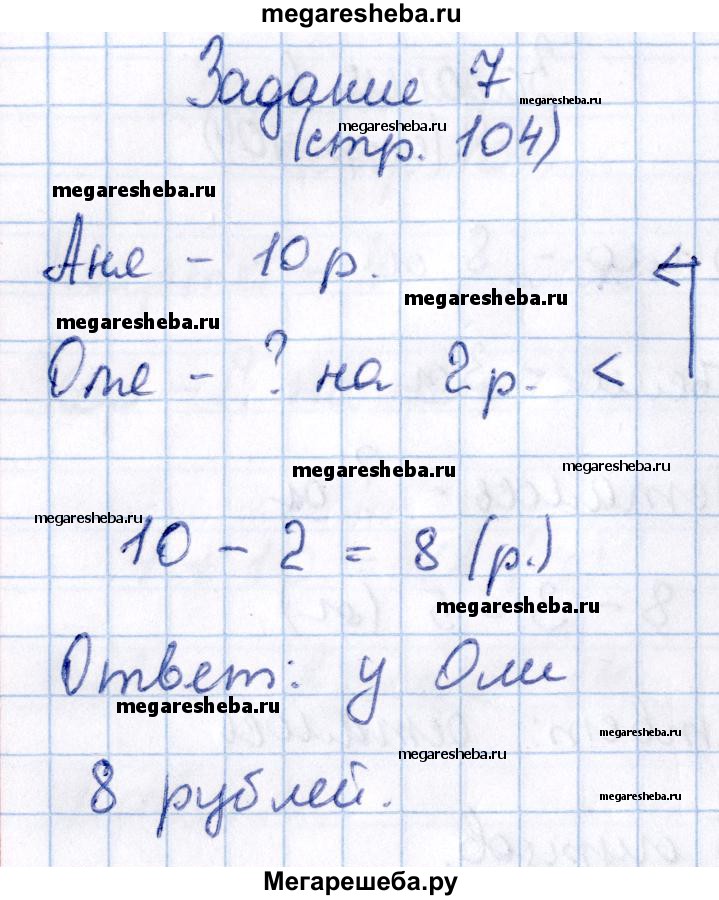 megaresheba.ru
Задание 7
megaresheba.ru
megaresheba.ru
(стр. 104)
megaresheba.ru
Аня - 10 р.
megaresheba.ru
megaresheba.ru
Оле - ? на 2 р. <
megaresheba.ru
megaresheba.ru
megaresheba.ru
10 - 2 = 8 (р.)
megaresheba.ru
Ответ: у Оли
megaresheba.ru
megaresheba.ru
megaresheba.ru
8 рублей.
megaresheba.ru
Мегарешеба.ру